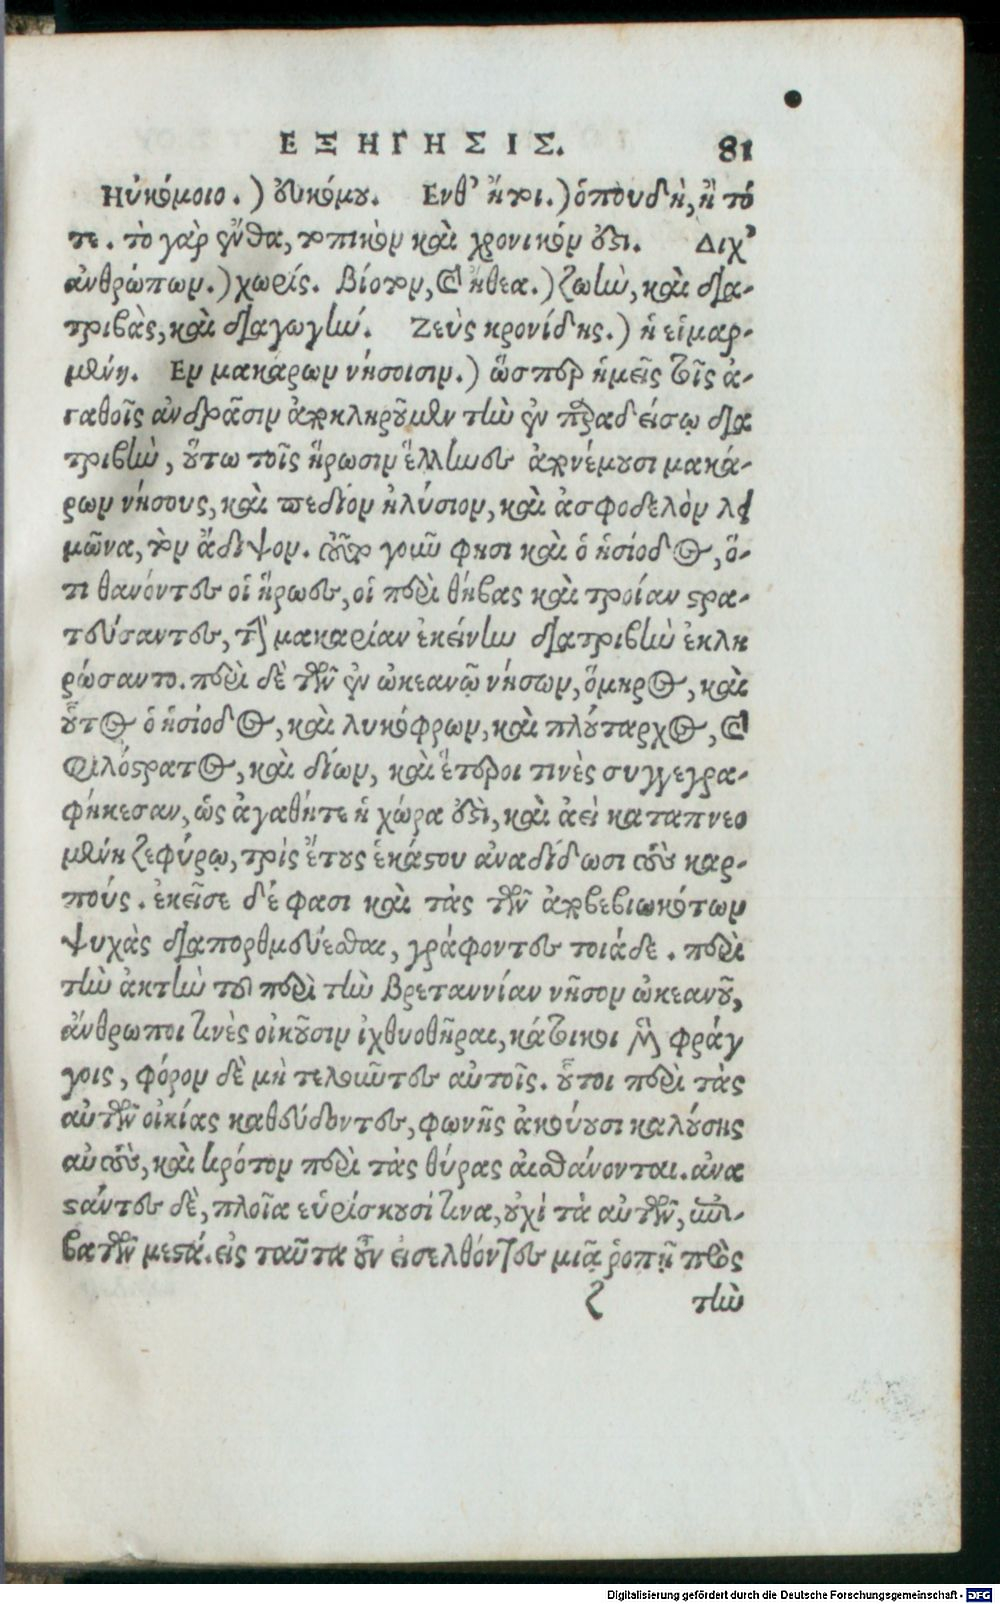 ΕΞΗΓΗΣΙΣ. 81
Ηὐκόμοιο.) εὐκόμου. Ενθ' ἤτοι.) ὁπουδὴ, ἢ τό
τε. τὸ γὰρ ἔνθα, τοπικὸν καὶ χρονικόν ἐστι. Διχ'
ἀνθρώπων.) χωρίς. βίοτον, καὶ ἤθεα.) ζωὴν, καὶ δια-
τριβὰς, καὶ διαγωγήν. Ζεὺς κρονίδης.) ἡ εἱμαρ-
μένη. Εν μακάρων νήσοισιν.) ὥσπερ ἡμεῖς τοῖς ἀ-
γαθοῖς ἀνδράσιν ἀποκληροῦμεν τὴν ἐν παραδείσῳ δια
τριβὴν, οὕτω τοῖς ἥρωσιν ἕλληνες ἀπονέμουσι μακά-
ρων νήσους, καὶ πεδίον ἠλύσιον, καὶ ἀσφοδελὸν λει
μῶνα, τὸν ἄδιψον. τοῦτο γοῦν φησι καὶ ὁ ἡσίοδος, ὅ-
τι θανόντες οἱ ἥρωες, οἱ περὶ θήβας καὶ τροίαν στρα-
τεύσαντες, τὴν μακαρίαν ἐκείνην διατριβὴν ἐκλη
ρώσαντο. περὶ δὲ τῶν ἐν ὠκεανῷ νήσων, ὅμηρος, καὶ
οὗτος ὁ ἡσίοδος, καὶ λυκόφρων, καὶ πλούταρχος, καὶ
Φιλόστρατος, καὶ δίων, καὶ ἕτεροι τινὲς συγγεγρα-
φήκεσαν, ὡς ἀγαθήτε ἡ χώρα ἐστὶ, καὶ ἀεὶ καταπνεο
μένη ζεφύρῳ, τρὶς ἔτους ἑκάστου ἀναδίδωσι τοὺς καρ-
πούς. ἐκεῖσε δέ φασι καὶ τὰς τῶν ἀποβεβιωκότων
ψυχὰς διαπορθμεύεσθαι, γράφοντες τοιάδε. περὶ
τὴν ἀκτὴν τοῦ περὶ τὴν Βρεταννίαν νῆσον ὠκεανοῦ,
ἄνθρωποι τινὲς οἰκοῦσιν ἰχθυοθῆραι, κάτοικοι μὲν φράγ
γοις, φόρον δὲ μὴ τελοῦντες αὐτοῖς. οὗτοι περὶ τὰς
αὐτῶν οἰκίας καθεύδοντες, φωνῆς ἀκούουσι καλούσης
αὐτοὺς, καὶ κρότον περὶ τὰς θύρας αἰσθάνονται. ἀνα
στάντες δὲ, πλοῖα εὑρίσκουσί τινα, οὐχὶ τὰ αὐτῶν, ἐπι-
βατῶν μεστά. εἰς ταῦτα οὖν εἰσελθόντες μιᾷ ῥοπῇ πρὸς
ζ τὴν
Digitalisierung gefördert durch die Deutsche Forschungsgemeinschaft - DFG